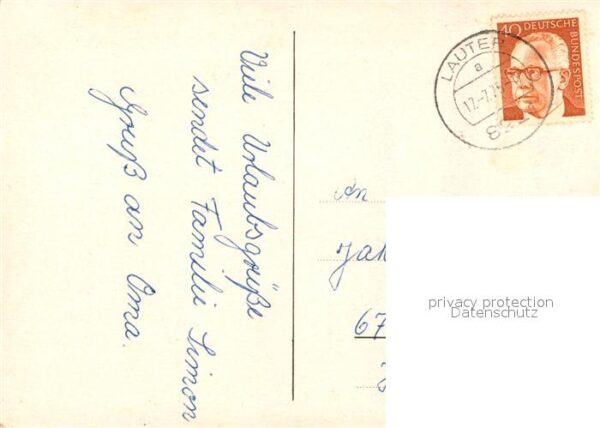 Viele Urlaubsgrüße
sendet Familie Simon
Gruß an Oma.
40 DEUTSCHE
BUNDESPOST
LAUTER
a
17.-7.75
882
An
67
privacy protection
Datenschutz